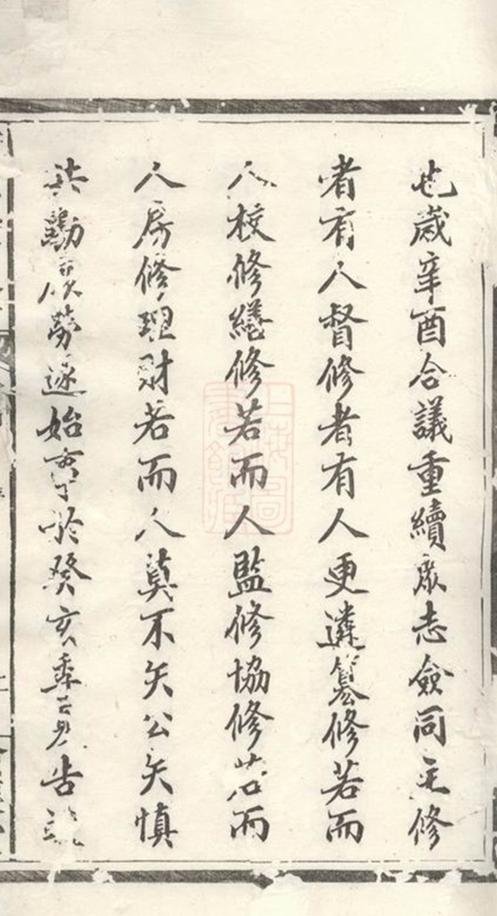 也歲辛酉合議重續眾志僉同主修
者有人督修者有人更遴纂修若而
人校修繕修若而人監修協修若而
人房修理財若而人莫不矢公矢慎
共勷厥勞遂始事於癸亥季告竣